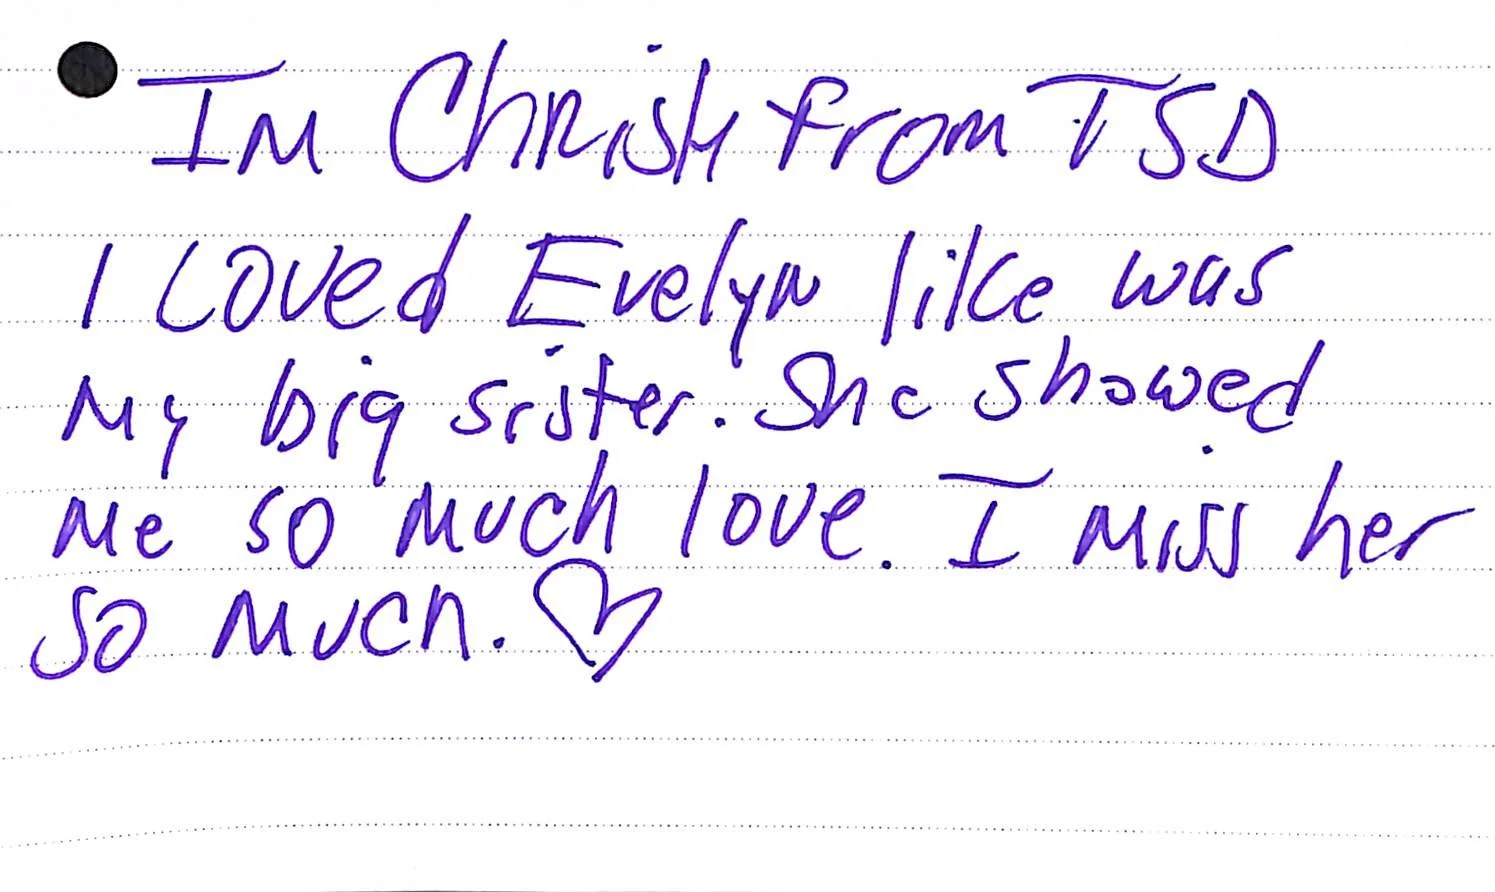 Im Christy from TSD
I Loved Evelyn like was
My big sister. She showed
Me so Much love. I Miss her
so Much. ♡